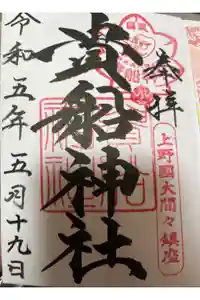 奉拝
上野國大間々鎮座
貴船神社
令和五年五月十九日